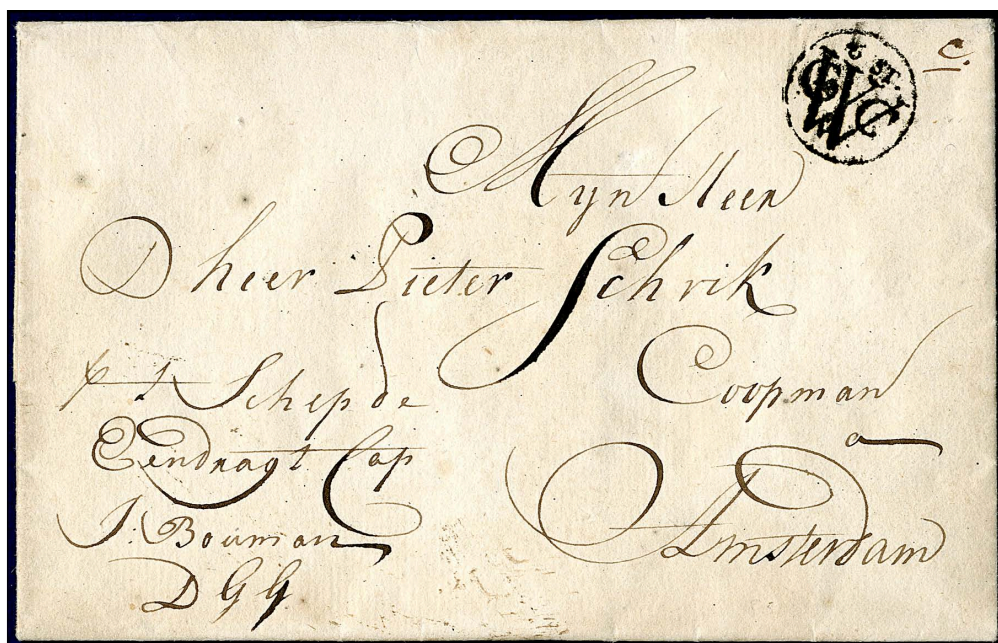 6 ST.
VOC
c.
Myn Heer
D heer Pieter Schrik
Coopman
a
Amsterdam
pr t Schip de
Eendragt Cap
J: Bouman
D G G